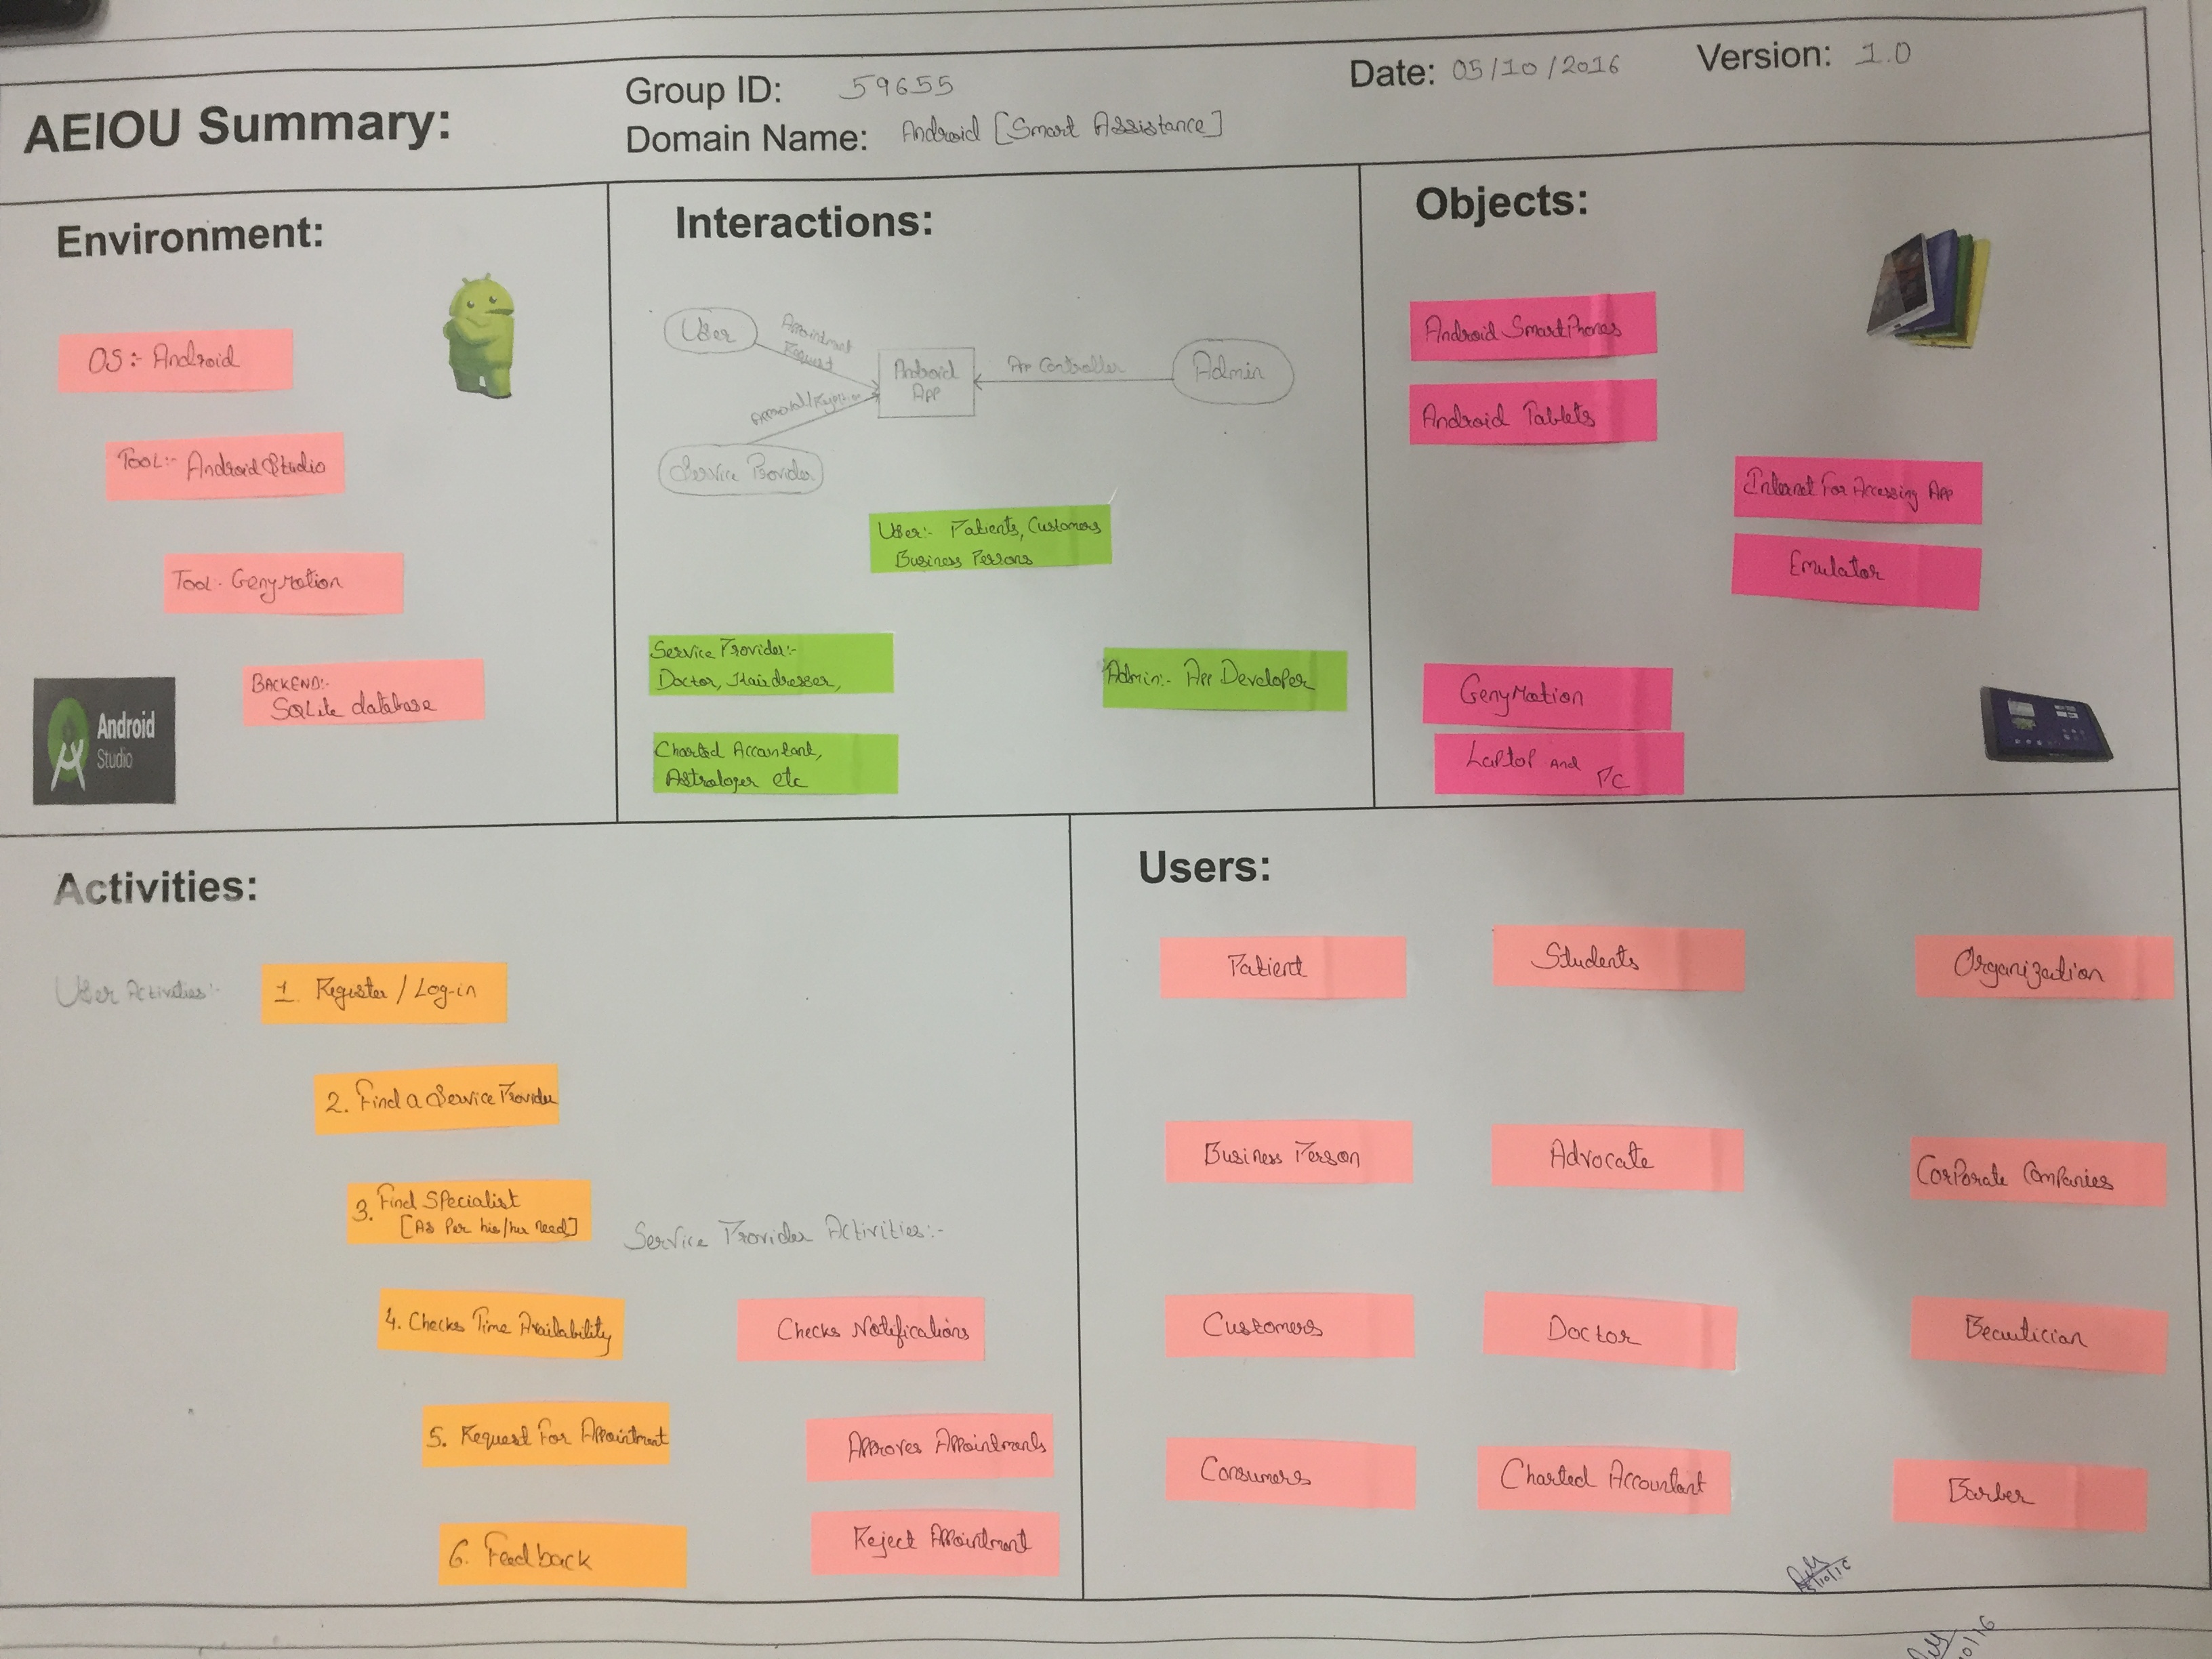 AEIOU Summary:
Group ID: 59655
Domain Name: Android [Smart Assistance]
Date: 05/10/2016
Version: 1.0
Environment:
OS:- Android
Tool:- Android Studio
Tool- Genymotion
BACKEND:-
SQLite database
Android
Studio
Interactions:
User
Appointment
Request
Android
App
App Controller
Admin
Service Provider
User:- Patients, Customers
Business Persons
Service Provider:-
Doctor, Hairdresser,
Admin:- App Developer
Charted Accountant,
Astrologer etc
Objects:
Android SmartPhones
Android Tablets
Internet For Accessing App
Emulator
GenyMotion
Laptop and PC
Activities:
User Activities:-
1. Register / Log-in
2. Find a Service Provider
3. Find Specialist
[As Per his/her need]
4. Checks Time Availability
5. Request For Appointment
6. Feedback
Service Provider Activities:-
Checks Notifications
Approves Appointments
Reject Appointment
Users:
Patient
Students
Organization
Business Person
Advocate
Corporate Companies
Customers
Doctor
Beautician
Consumers
Charted Accountant
Barber